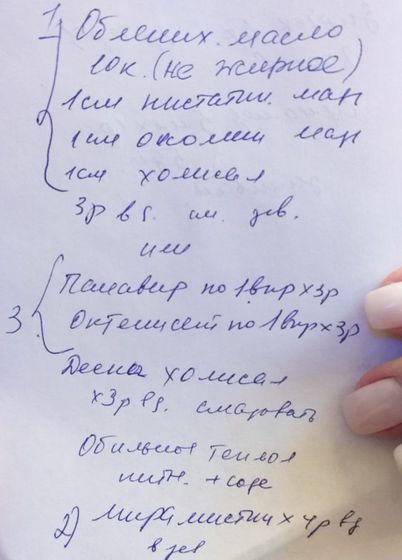 1. Облепих. масло
10к. (не жирное)
1см нистатин. маз
1см маз
1см холисал
3р в д. см. зев.
или
3. Панавир по 1впр х3р
Октенисепт по 1впр х3р
Десна холисал
х3р вд. смазовать
Обильное теплое
пить. + соде
2) Мирамистин х 4р вд
в зев